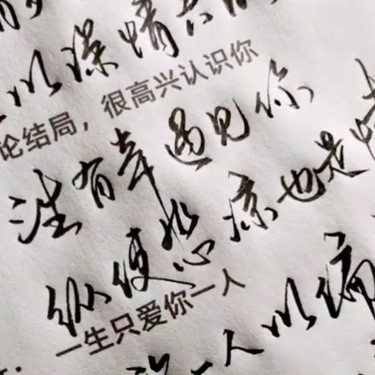 以深情共
论结局，很高兴认识你
生有幸遇见你
纵使悲凉也是
一生只爱你一人
一人以偏